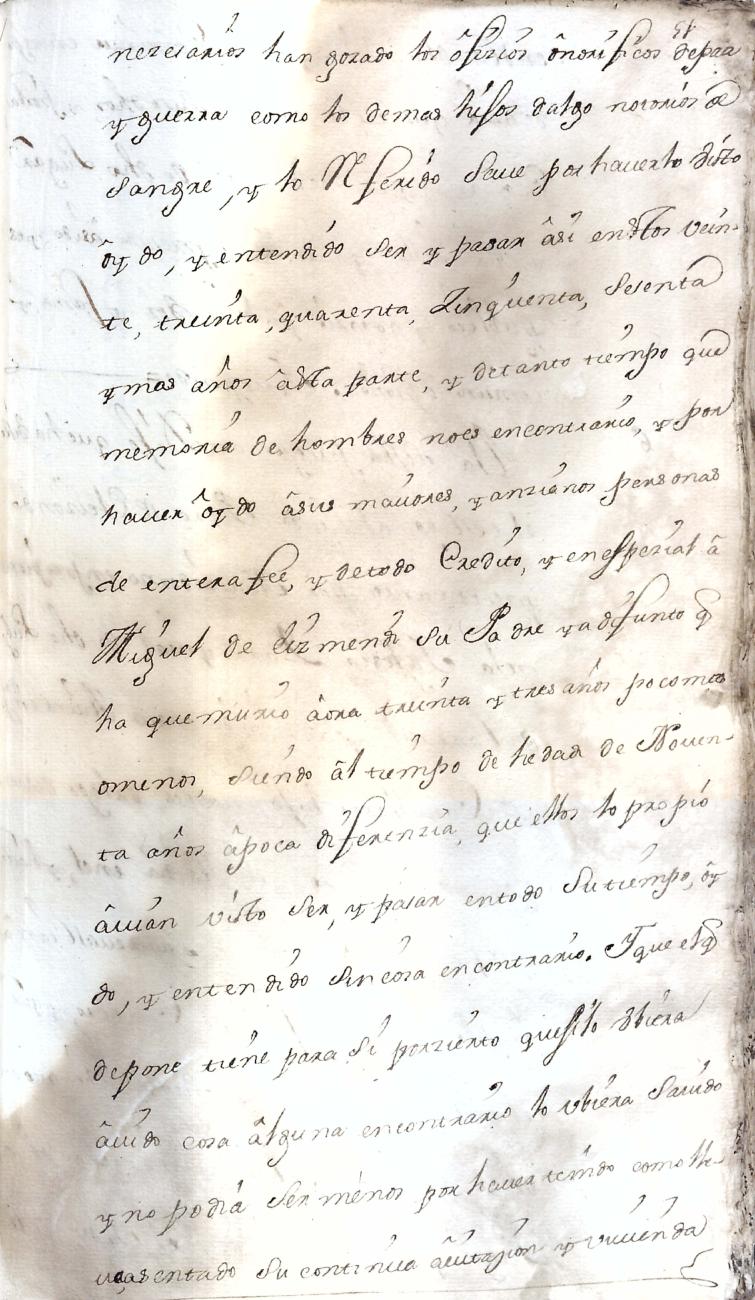 51
nezesarios han gozado los ofizios onorificos de paz
y guerra como los demas hijos dalgo notorios de
sangre, y lo Referido save por haverlo visto
oydo, y entendido ser y pasar asi en estos vein-
te, treinta, quarenta, zinquenta, sesenta
y mas años a esta parte, y de tanto tiempo que
memoria de hombres no es en contrario, y por
haver oydo a sus maiores, y anzianos personas
de entera fee, y de todo Credito, y en espezial a
Miguel de Eizmendi su Padre ya difunto q
ha que murio aora treinta y tres años poco mas
o menos, siendo al tiempo de hedad de Noven-
ta años a poca diferenzia, que ellos lo propio
avian visto ser, y pasar en todo su tiempo, oy
do, y entendido sin cosa en contrario. Y que el q
depone tiene para si por zierto que si lo ubiera
avido cosa alguna en contrario lo ubiera savido
y no podia ser menos por haver tenido como lle-
va asentado su continua avitazion y vivienda